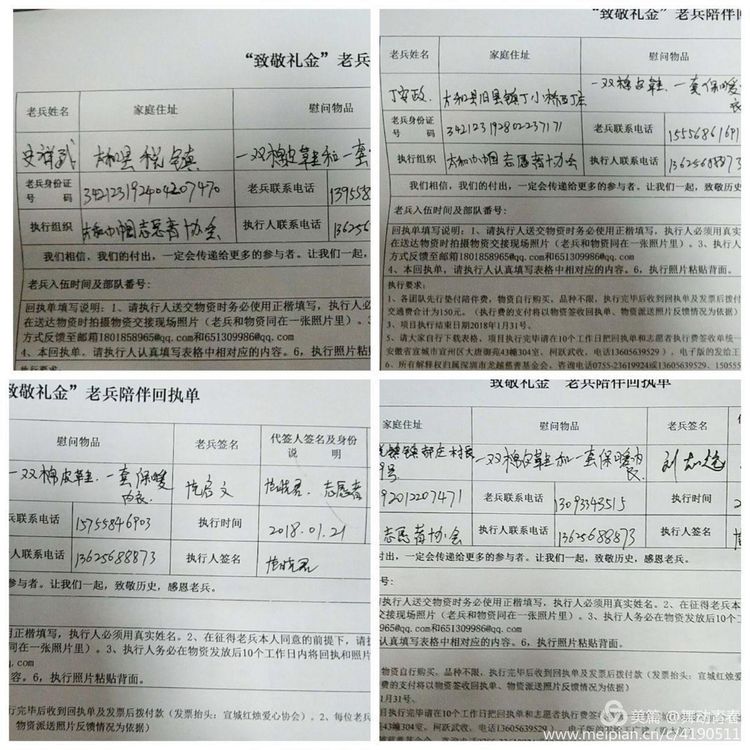 “致敬礼金”老兵
老兵姓名 家庭住址 慰问物品
史祥武 太和县 税镇 一双棉皮鞋和一套
老兵身份证号码 342123192404207470 老兵联系电话 139558
执行组织 太和小巾帼志愿者协会 执行人联系电话 13625
我们相信，我们的付出，一定会传递给更多的参与者。让我们一起，
老兵入伍时间及部队番号：
回执单填写说明：1、请执行人送交物资时务必使用正楷填写，执行人必
在送达物资时拍摄物资交接现场照片（老兵和物资同在一张照片里）。3
方式反馈至邮箱1801858965@qq.com和651309986@qq.com
4、本回执单，请执行人认真填写表格中相对应的内容。6，执行照片粘
执行要求：
“致敬礼金”老兵陪伴回执单
老兵姓名 家庭住址 慰问物品
丁安政 太和县旧县镇丁小桥西丁庄 一双棉皮鞋、一套保暖
老兵身份证号码 342123192802237171 老兵联系电话 1555686169
执行组织 太和小巾帼志愿者协会 执行人联系电话 13625688873
我们相信，我们的付出，一定会传递给更多的参与者。让我们一起，致敬历史，
老兵入伍时间及部队番号：
回执单填写说明：1、请执行人送交物资时务必使用正楷填写，执行人必须用真实
在送达物资时拍摄物资交接现场照片（老兵和物资同在一张照片里）。3、执行人
方式反馈至邮箱1801858965@qq.com和651309986@qq.com
4、本回执单，请执行人认真填写表格中相对应的内容。6，执行照片粘贴背面。
执行要求：
1、各团队先行垫付陪伴费，物资自行购买，品种不限，执行完毕后收到回执单及发票后拨
交通费合计为150元。（执行费的支付将以物资签收回执单、物资派送照片反馈情况为依据）
3、项目执行结束日期2018年1月31号。
4、请大家自行下载表格，项目执行完毕请在10个工作日把回执单和志愿者执行费签收单统一
安徽省宣城市宣州区大唐御苑43幢304室，柯跃武收，电话13605639529），电子版的发给王
6、所有解释权归属深圳市龙越慈善基金会，咨询电话0755-23619924或13605639529、150555
致敬礼金”老兵陪伴回执单
慰问物品 老兵签名 代签人签名及身份说明
一双棉皮鞋、一套保暖内衣 志愿者
兵联系电话 15755846903 执行时间 2018.01.21
人联系电话 13625688873 执行人签名
参与者。让我们一起，致敬历史，感恩老兵。
用正楷填写，执行人必须用真实姓名。2、在征得老兵本人同意的前提下，请
同在一张照片里）。3、执行人务必在物资发放后10个工作日内将回执和照片
q.com
内容。6，执行照片粘贴背面。
执行完毕后收到回执单及发票后拨付款（发票抬头：宣城红烛爱心协会）。2、每位老兵
物资派送照片反馈情况为依据）
致敬礼金”老兵陪伴回执单
家庭住址 慰问物品 老兵签名
镇郭庄村 号 一双棉皮鞋和一套保暖内衣
92012207471 老兵联系电话 13093343515 执行时间
志愿者协会 执行人联系电话 13625688873 执行人签名
付出，一定会传递给更多的参与者。让我们一起，致敬历史，感恩老兵。
号：
执行人送交物资时务必使用正楷填写，执行人必须用真实姓名。2、在征得老
交接现场照片（老兵和物资同在一张照片里）。3、执行人务必在物资发放后10个
65@qq.com和651309986@qq.com
认真填写表格中相对应的内容。6，执行照片粘贴背面。
物资自行购买，品种不限，执行完毕后收到回执单及发票后拨付款（发票抬头：宣城红烛
费的支付将以物资签收回执单、物资派送照片反馈情况为依据）
1月31号。
项目执行完毕请在10个工作日把回执单和志愿者执行费
美篇 @舞动青春
www.meipian.cn/74190511